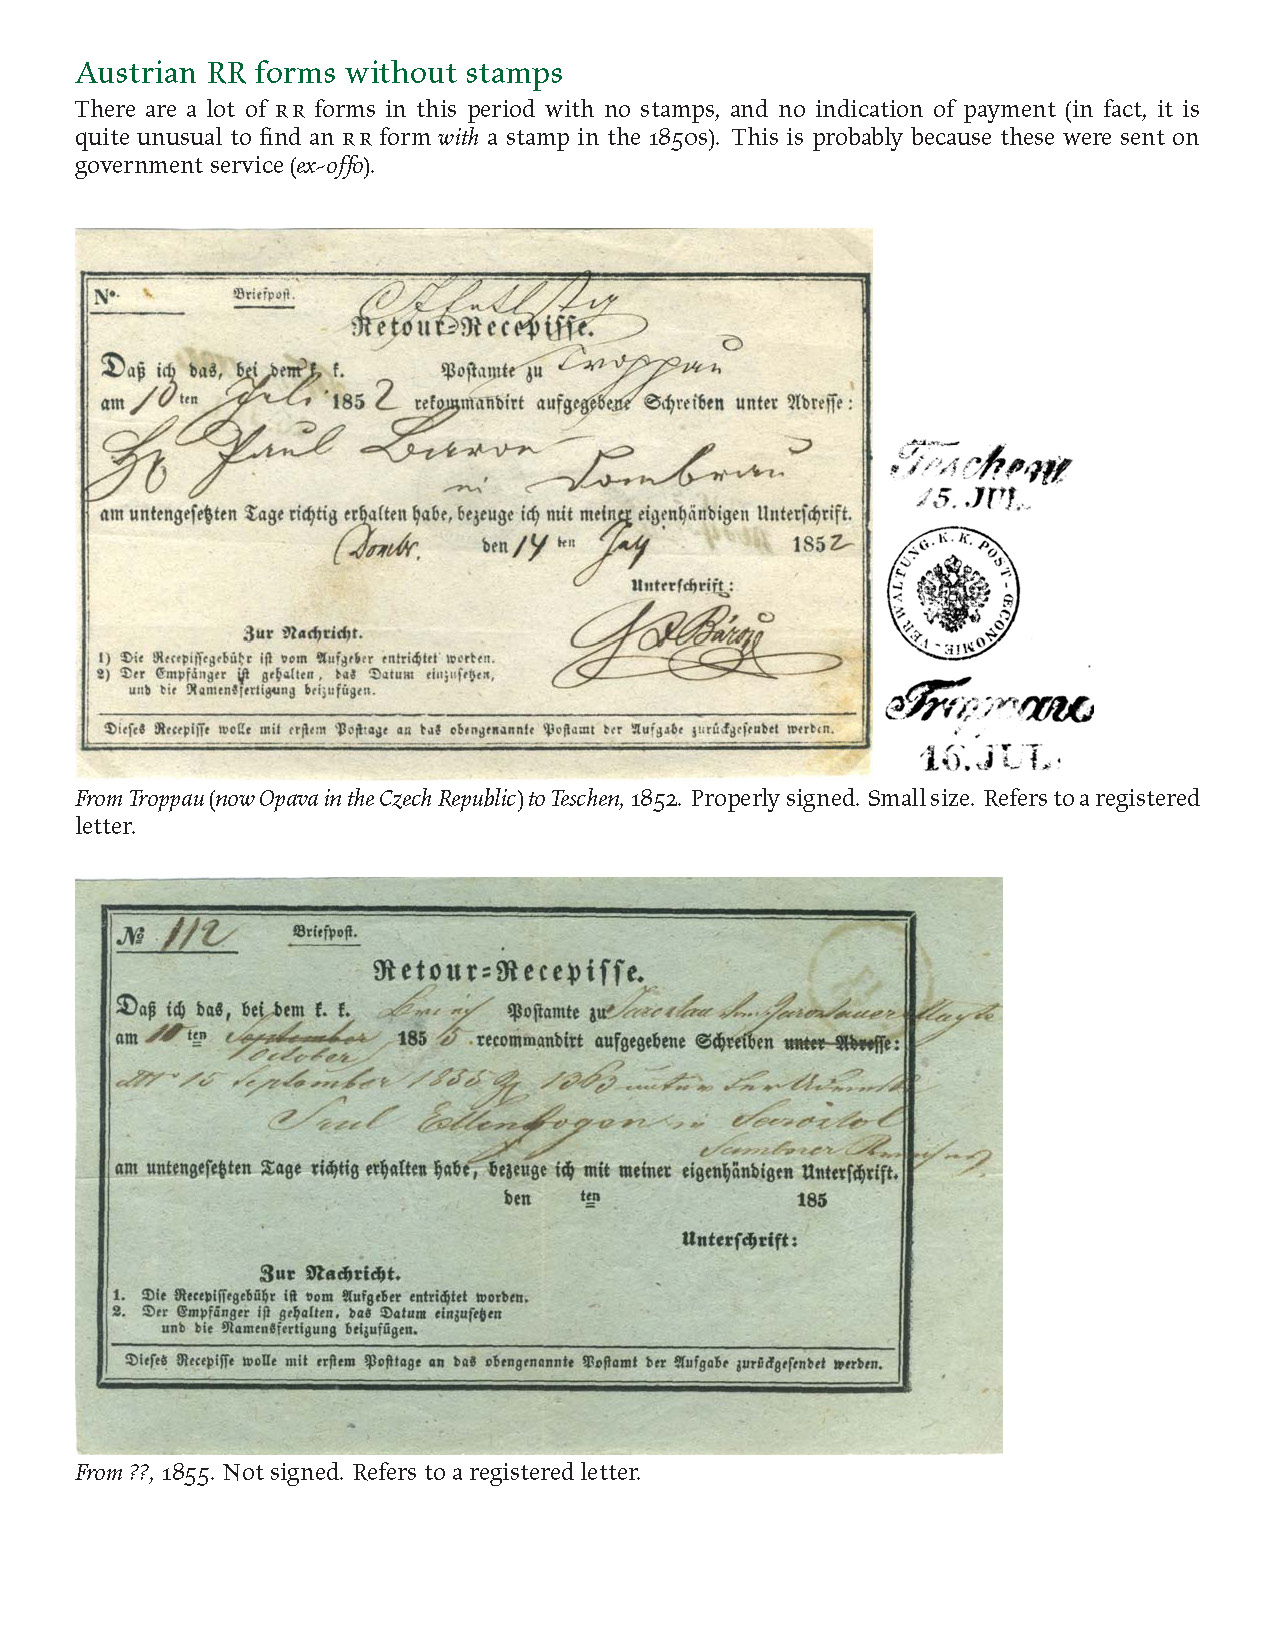 Austrian RR forms without stamps
There are a lot of RR forms in this period with no stamps, and no indication of payment (in fact, it is
quite unusual to find an RR form with a stamp in the 1850s). This is probably because these were sent on
government service (ex-offo).
No. Briefpost.
Retour=Recepisse.
Daß ich das, bei dem k. k. Postamte zu Troppau
am 10 ten Juli 1852 rekommandirt aufgegebene Schreiben unter Adresse:
Paul Baron
in Dombrau
am untengesetzten Tage richtig erhalten habe, bezeuge ich mit meiner eigenhändigen Unterschrift.
Dombr. den 14 ten July 1852
Unterschrift:
Zur Nachricht.
1) Die Recepissegebühr ist vom Aufgeber entrichtet worden.
2) Der Empfänger ist gehalten, das Datum einzusetzen,
und die Namensfertigung beizufügen.
Dieses Recepisse wolle mit erstem Posttage an das obengenannte Postamt der Aufgabe zurückgesendet werden.
Teschen
15. JUL.
K. K. POST-ŒCONOMIE-VERWALTUNG.
Troppau
16. JUL.
From Troppau (now Opava in the Czech Republic) to Teschen, 1852. Properly signed. Small size. Refers to a registered
letter.
No 112 Briefpost.
Retour=Recepisse.
Daß ich das, bei dem k. k. Postamte zu Jaroslau
am 10 ten September 1855 recommandirt aufgegebene Schreiben unter Adresse:
October
15 September 1855 1363 unter der Adresse
Ellenbogen in
am untengesetzten Tage richtig erhalten habe, bezeuge ich mit meiner eigenhändigen Unterschrift.
den ten 185
Unterschrift:
Zur Nachricht.
1. Die Recepissegebühr ist vom Aufgeber entrichtet worden.
2. Der Empfänger ist gehalten, das Datum einzusetzen
und die Namensfertigung beizufügen.
Dieses Recepisse wolle mit erstem Posttage an das obengenannte Postamt der Aufgabe zurückgesendet werden.
From ??, 1855. Not signed. Refers to a registered letter.